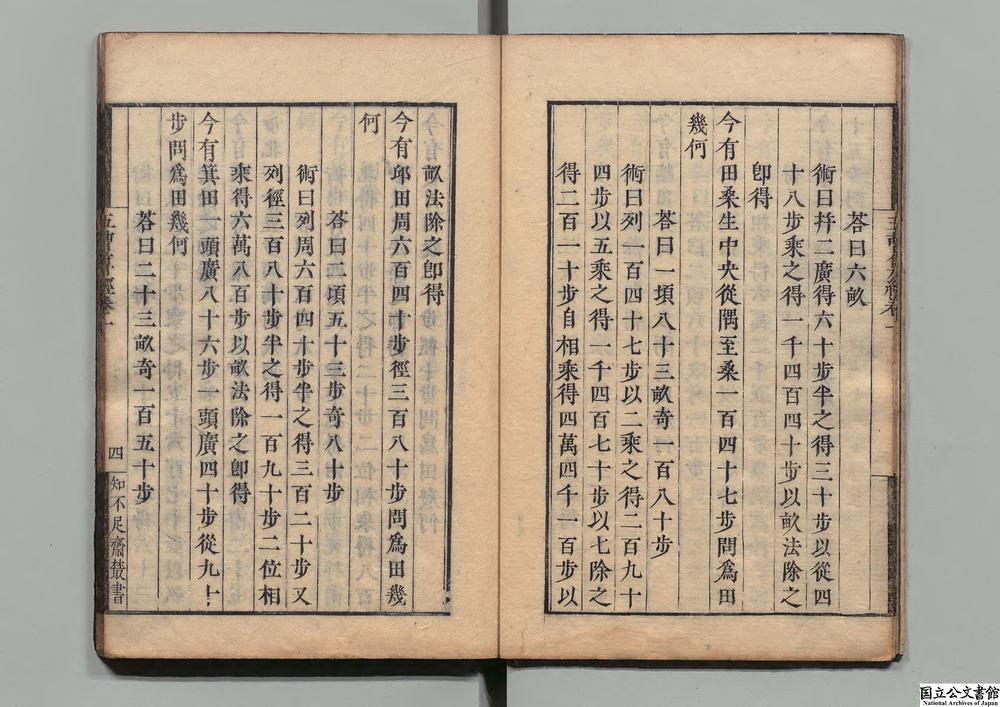 荅曰六畝
術曰幷二廣得六十步半之得三十步以從四
十八步乘之得一千四百四十步以畝法除之
卽得
今有田桑生中央從隅至桑一百四十七步問爲田
幾何
荅曰一頃八十三畝奇一百八十步
術曰列一百四十七步以二乘之得二百九十
四步以五乘之得一千四百七十步以七除之
得二百一十步自相乘得四萬四千一百步以
畝法除之卽得
今有邱田周六百四十步徑三百八十步問爲田幾
何
荅曰二頃五十三步奇八十步
術曰列周六百四十步半之得三百二十步又
列徑三百八十步半之得一百九十步二位相
乘得六萬八百步以畝法除之卽得
今有箕田一頭廣八十六步一頭廣四十步從九十
步問爲田幾何
荅曰二十三畝奇一百五十步
五曹算經卷一
四
知不足齋叢書
国立公文書館
National Archives of Japan